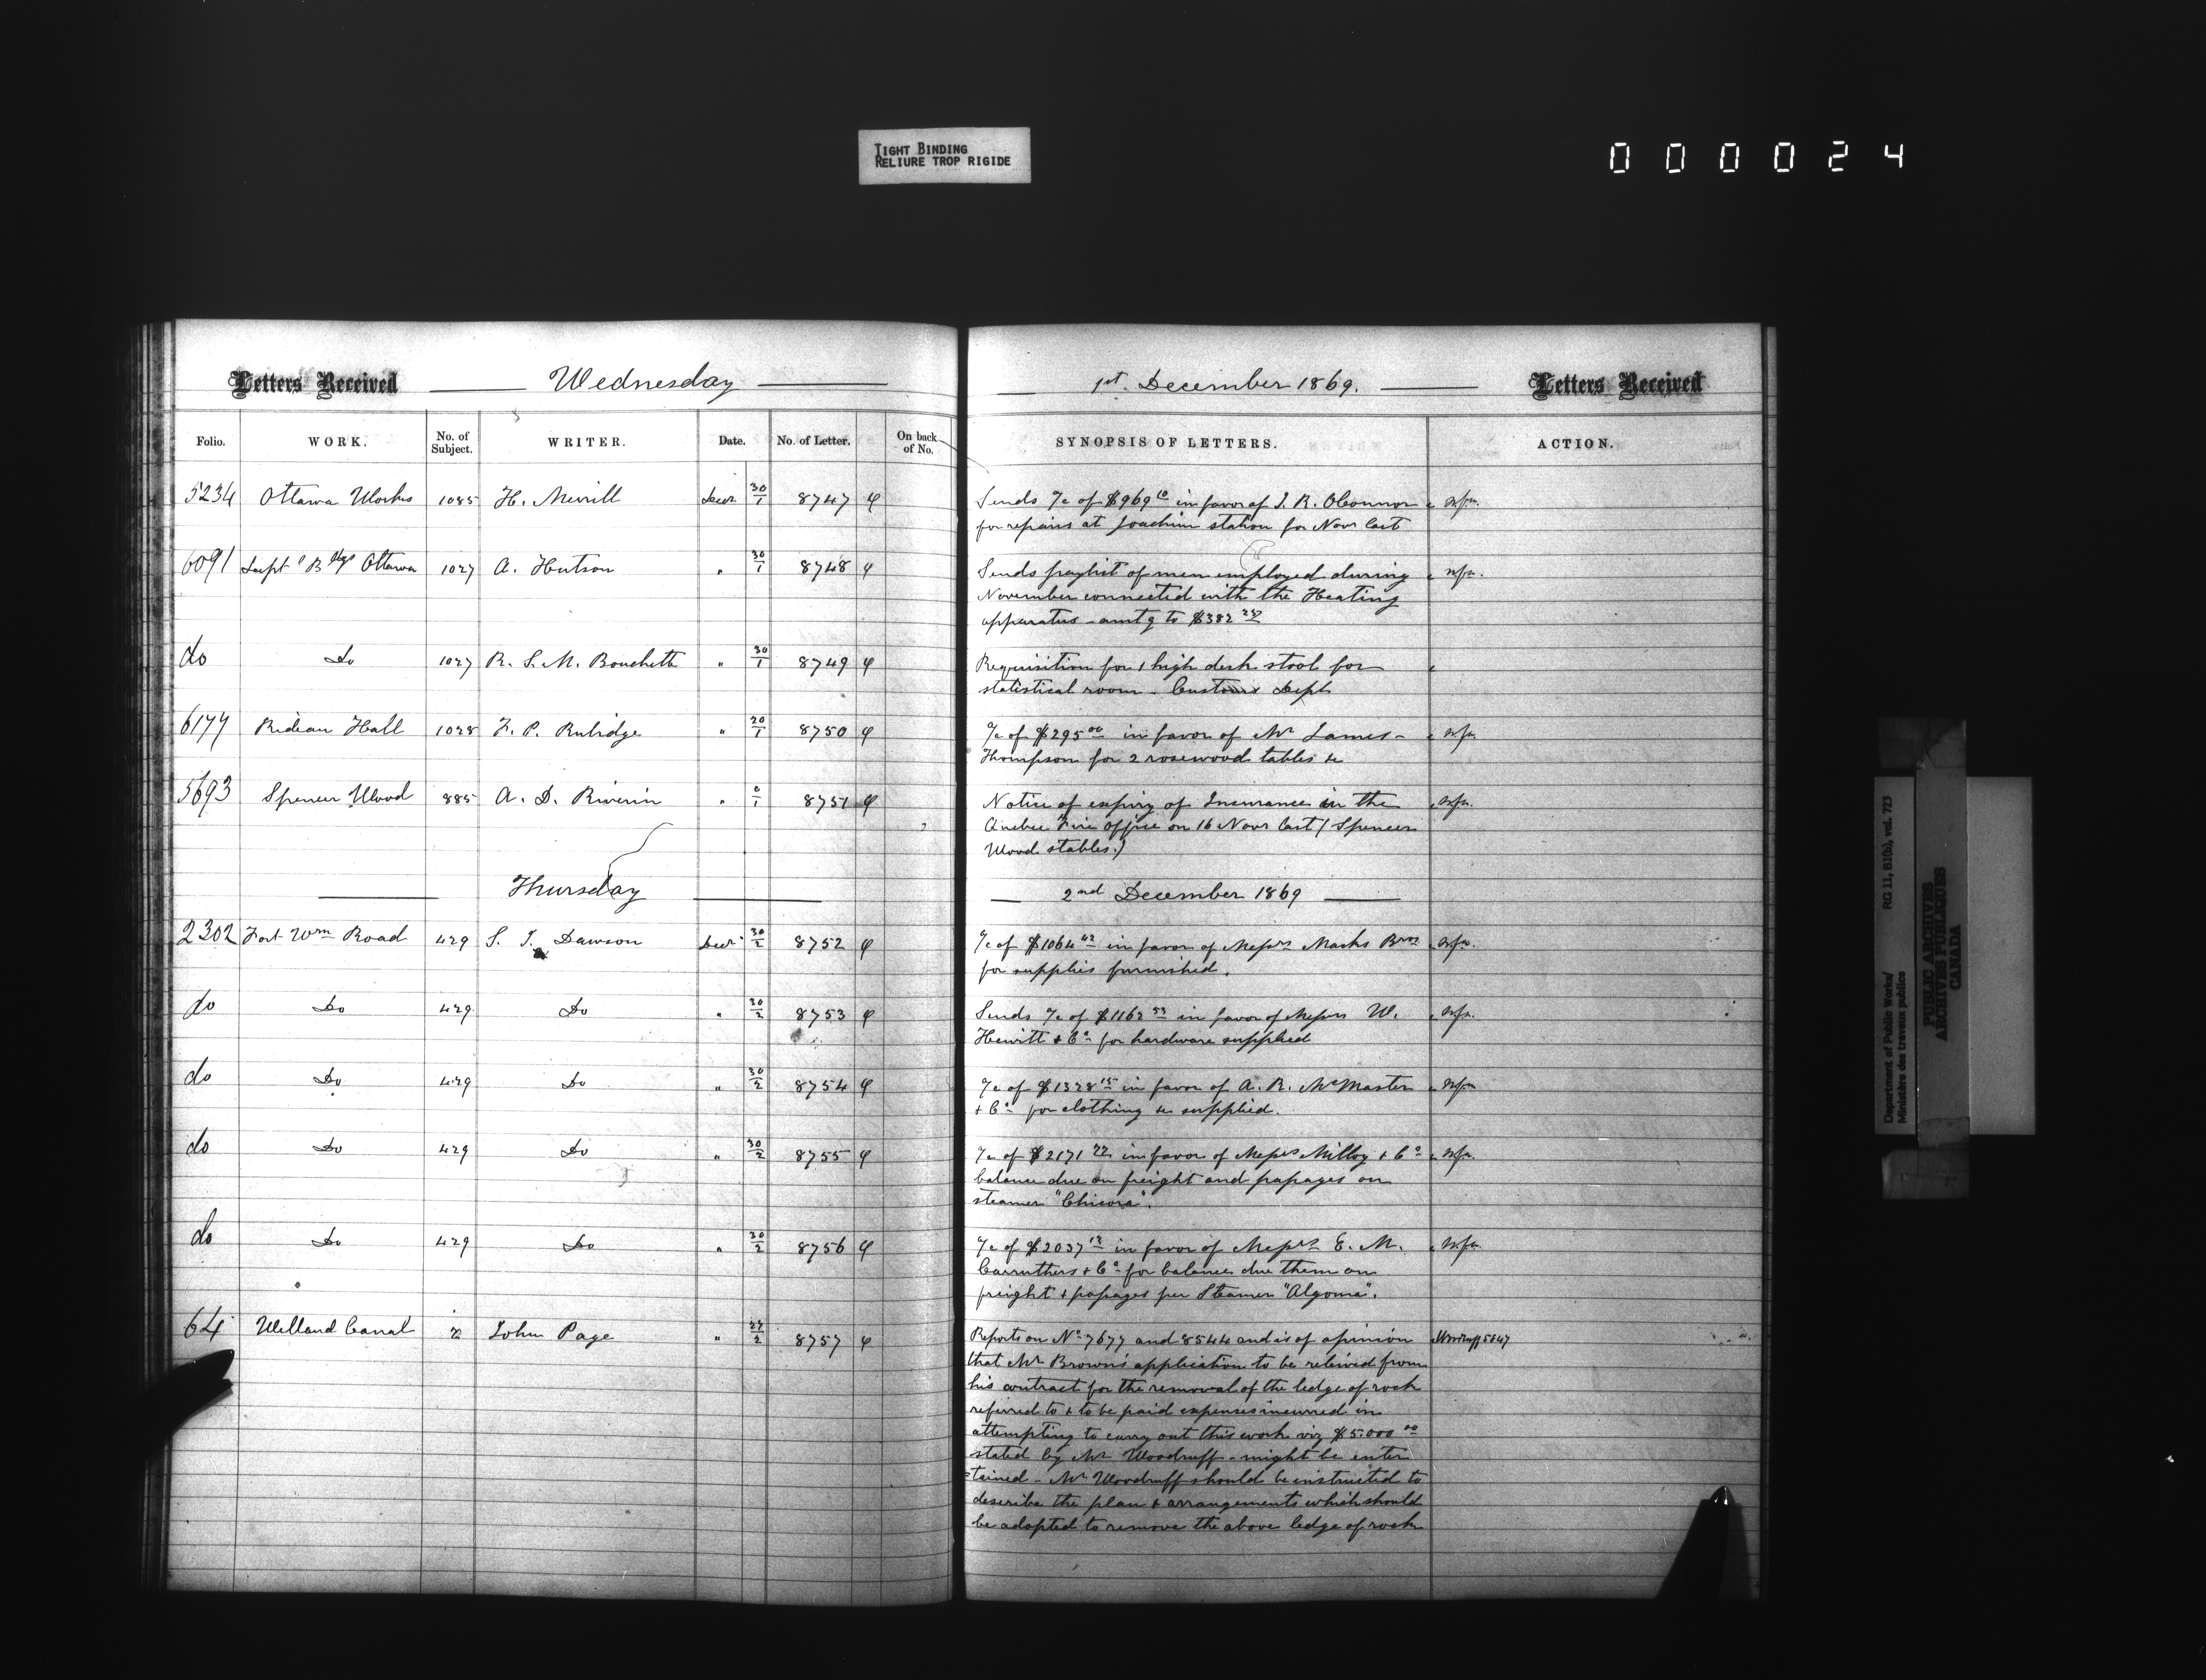 TIGHT BINDING
RELIURE TROP RIGIDE
000024
Letters Received Wednesday 1st. December 1869. Letters Received
Folio. WORK. No. of Subject. WRITER. Date. No. of Letter. On back of No. SYNOPSIS OF LETTERS. ACTION.
5234 Ottawa Works 1085 H. Merrill Decr 30/1 8747 Sends a/c of $969 10 in favor of J. R. OConnor
for repairs at Joachim station for Novr last
6091 Bdgs Ottawa 1027 A. Hutson " 30/1 8748 Sends paylist of men employed during
November connected with the Heating
apparatus - amtg to $382
do Do 1027 R. S. M. Bouchette " 30/1 8749 Requisition for 1 high desk stool for
statistical room - Customs Dept
6177 Rideau Hall 1028 F. P. Rubidge " 20/1 8750 a/c of $295 00 in favor of Mr James
Thompson for 2 rosewood tables &c
5693 Spencer Wood 885 A. D. Riverin " 0/1 8751 Notice of expiry of Insurance in the
Quebec Fire Office on 16 Novr last (Spencer
Wood stables.)
Thursday 2nd December 1869
2302 Fort Wm Road 429 S. J. Dawson Decr 30/2 8752 a/c of $1064 42 in favor of Messrs Marks Bros
for supplies furnished.
do Do 429 Do " 30/2 8753 Sends a/c of $1162 53 in favor of Messrs W.
Hewitt & Co for hardware supplied
do Do 429 Do " 30/2 8754 a/c of $1328 15 in favor of A. R. McMaster
& Co for clothing &c supplied.
do Do 429 Do " 30/2 8755 a/c of $2171 72 in favor of Messrs Milloy & Co
balance due on freight and passages on
steamer "Chicora".
do Do 429 Do " 30/2 8756 a/c of $2037 12 in favor of Messrs E. M.
Carruthers & Co for balance due them on
freight & passages per Steamer "Algoma".
64 Welland Canal 2 John Page " 27/2 8757 Reports on No 7677 and 8544 and is of opinion Woodruff 5647
that Mr Brown's application to be releived from
his contract for the removal of the ledge of rock
referred to & to be paid expenses incurred in
attempting to carry out this work viz $5.000 00
stated by Mr Woodruff - might be enter
tained - Mr Woodruff should be instructed to
describe the plan & arrangements which should
be adopted to remove the above ledge of rock
Department of Public Works/ RG 11, B1(b), vol. 723
Ministère des travaux publics
PUBLIC ARCHIVES
ARCHIVES PUBLIQUES
CANADA